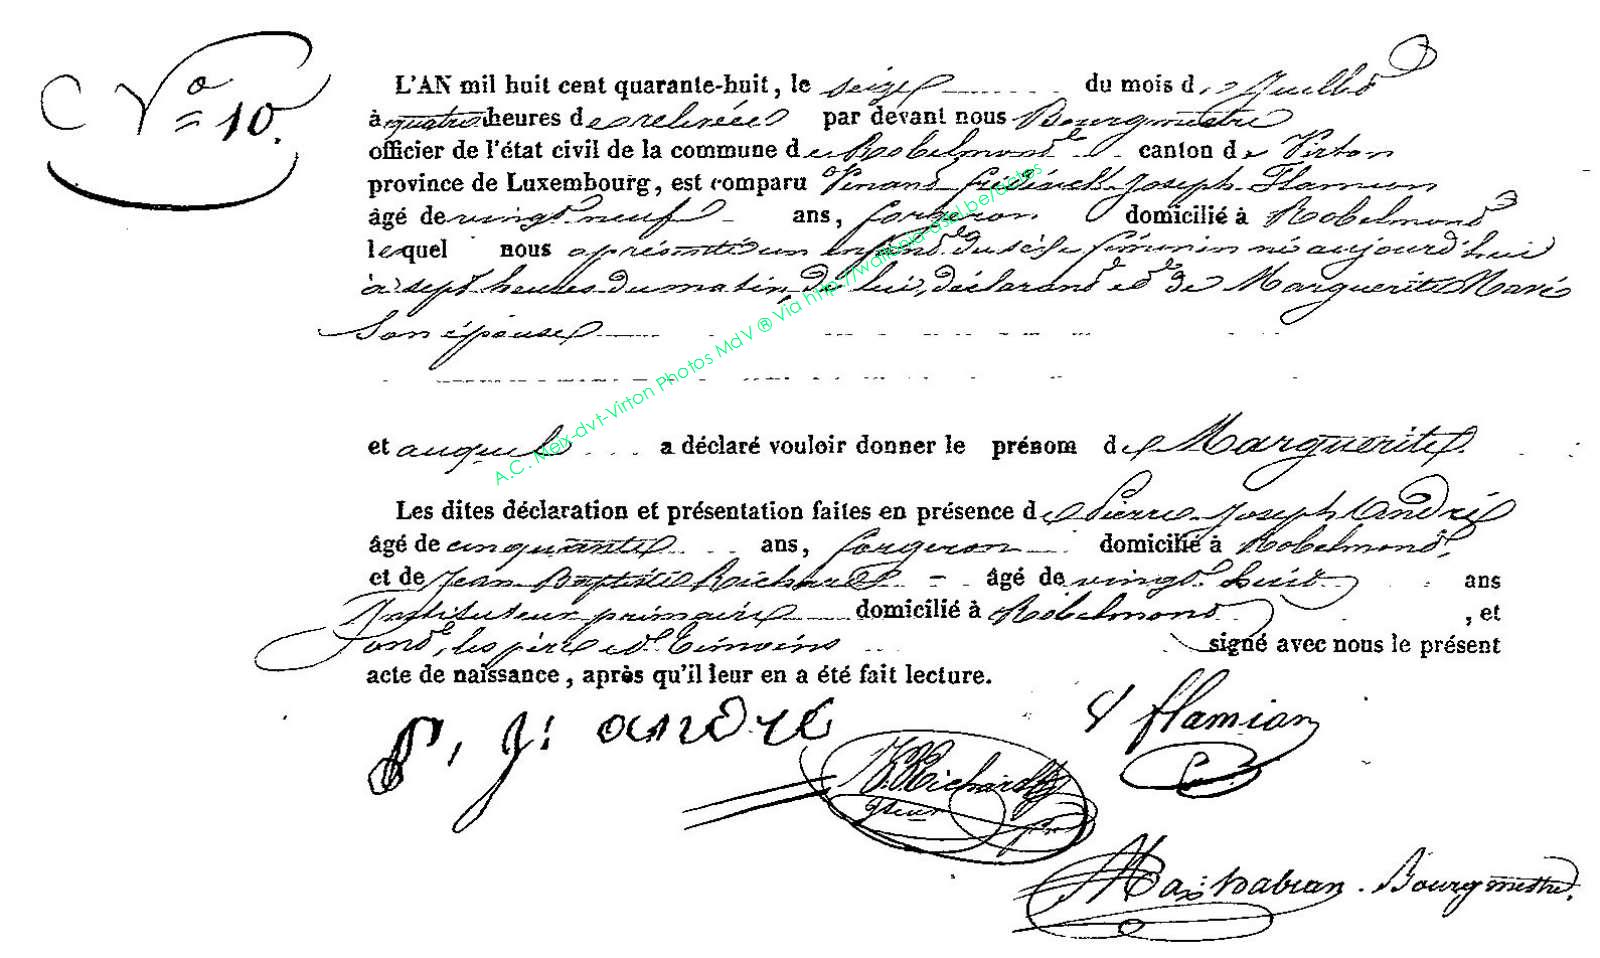 N° 10.
L'AN mil huit cent quarante-huit, le seize du mois de Juillet
à quatre heures de relevée par devant nous Bourgmestre
officier de l'état civil de la commune de Robelmont canton de Virton
province de Luxembourg, est comparu Vinand frédérick Joseph Flamion
âgé de vingt neuf ans, forgeron domicilié à Robelmont
lequel nous a présenté un enfant du sèxe féminin né aujourd'hui
à sept heures du matin, de lui, déclarant et de Marguerite Marié
Son épouse
et auquel a déclaré vouloir donner le prénom de Marguerite.
Les dites déclaration et présentation faites en présence de Pierre Joseph André
âgé de cinquante ans, forgeron domicilié à Robelmont,
et de Jean Baptiste Richard âgé de vingt huit ans
Instituteur primaire domicilié à Robelmont, et
ont, les père et témoins signé avec nous le présent
acte de naissance, après qu'il leur en a été fait lecture.
P. J. andré
flamion
Richard
Bourgmestre.
A.C. Meix-dvt-Virton Photos MdV ® Via http://wallonia-asbl.be/actes